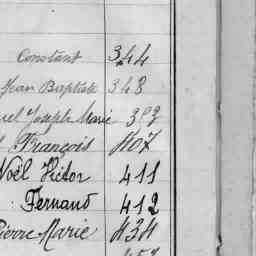 Constant 344
Jean Baptiste 348
Joseph Marie 393
François 407
Noël Victor 411
Fernand 412
Pierre Marie 434